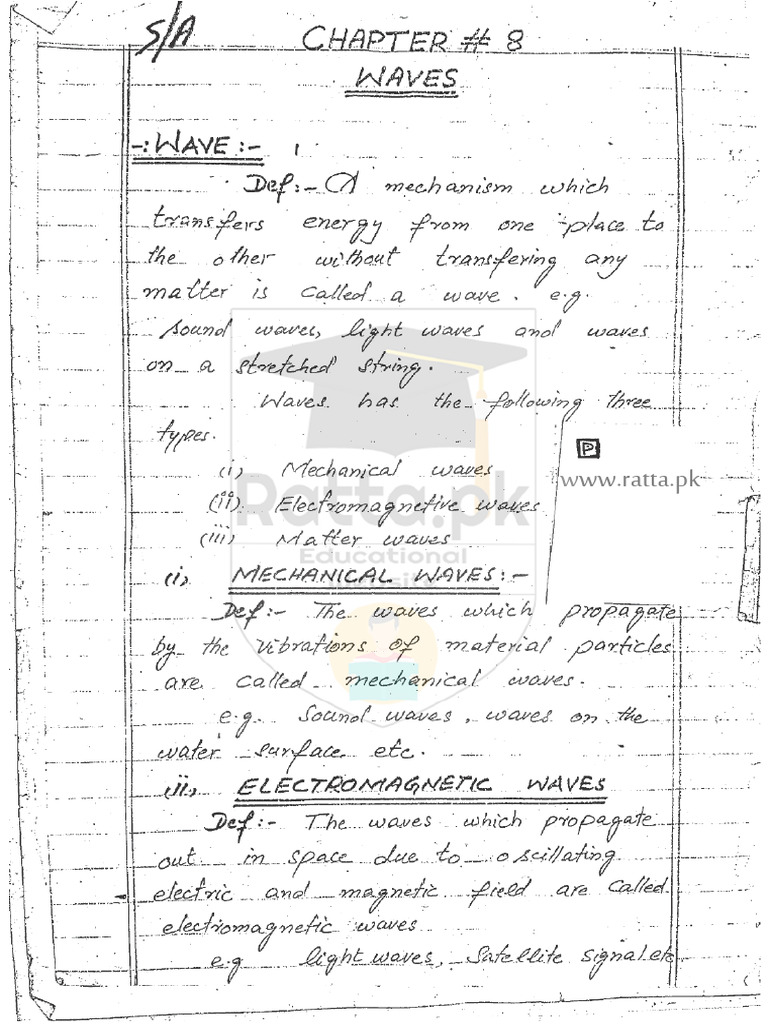 S/A
CHAPTER # 8
WAVES
-: WAVE :-
Def:- A mechanism which
transfers energy from one place to
the other without transfering any
matter is called a wave. e.g.
sound waves, light waves and waves
on a stretched string.
Waves has the following three
types.
P
(i) Mechanical waves
www.ratta.pk
(ii) Electromagnetive waves
Ratta.pk
(iii) Matter waves
Educational
(i) MECHANICAL WAVES:-
Def:- The waves which propagate
by the vibrations of material particles
are called mechanical waves.
e.g. Sound waves, waves on the
water surface etc.
(ii) ELECTROMAGNETIC WAVES
Def:- The waves which propagate
out in space due to oscillating
electric and magnetic field are called
electromagnetic waves
e.g light waves, Satellite signal etc